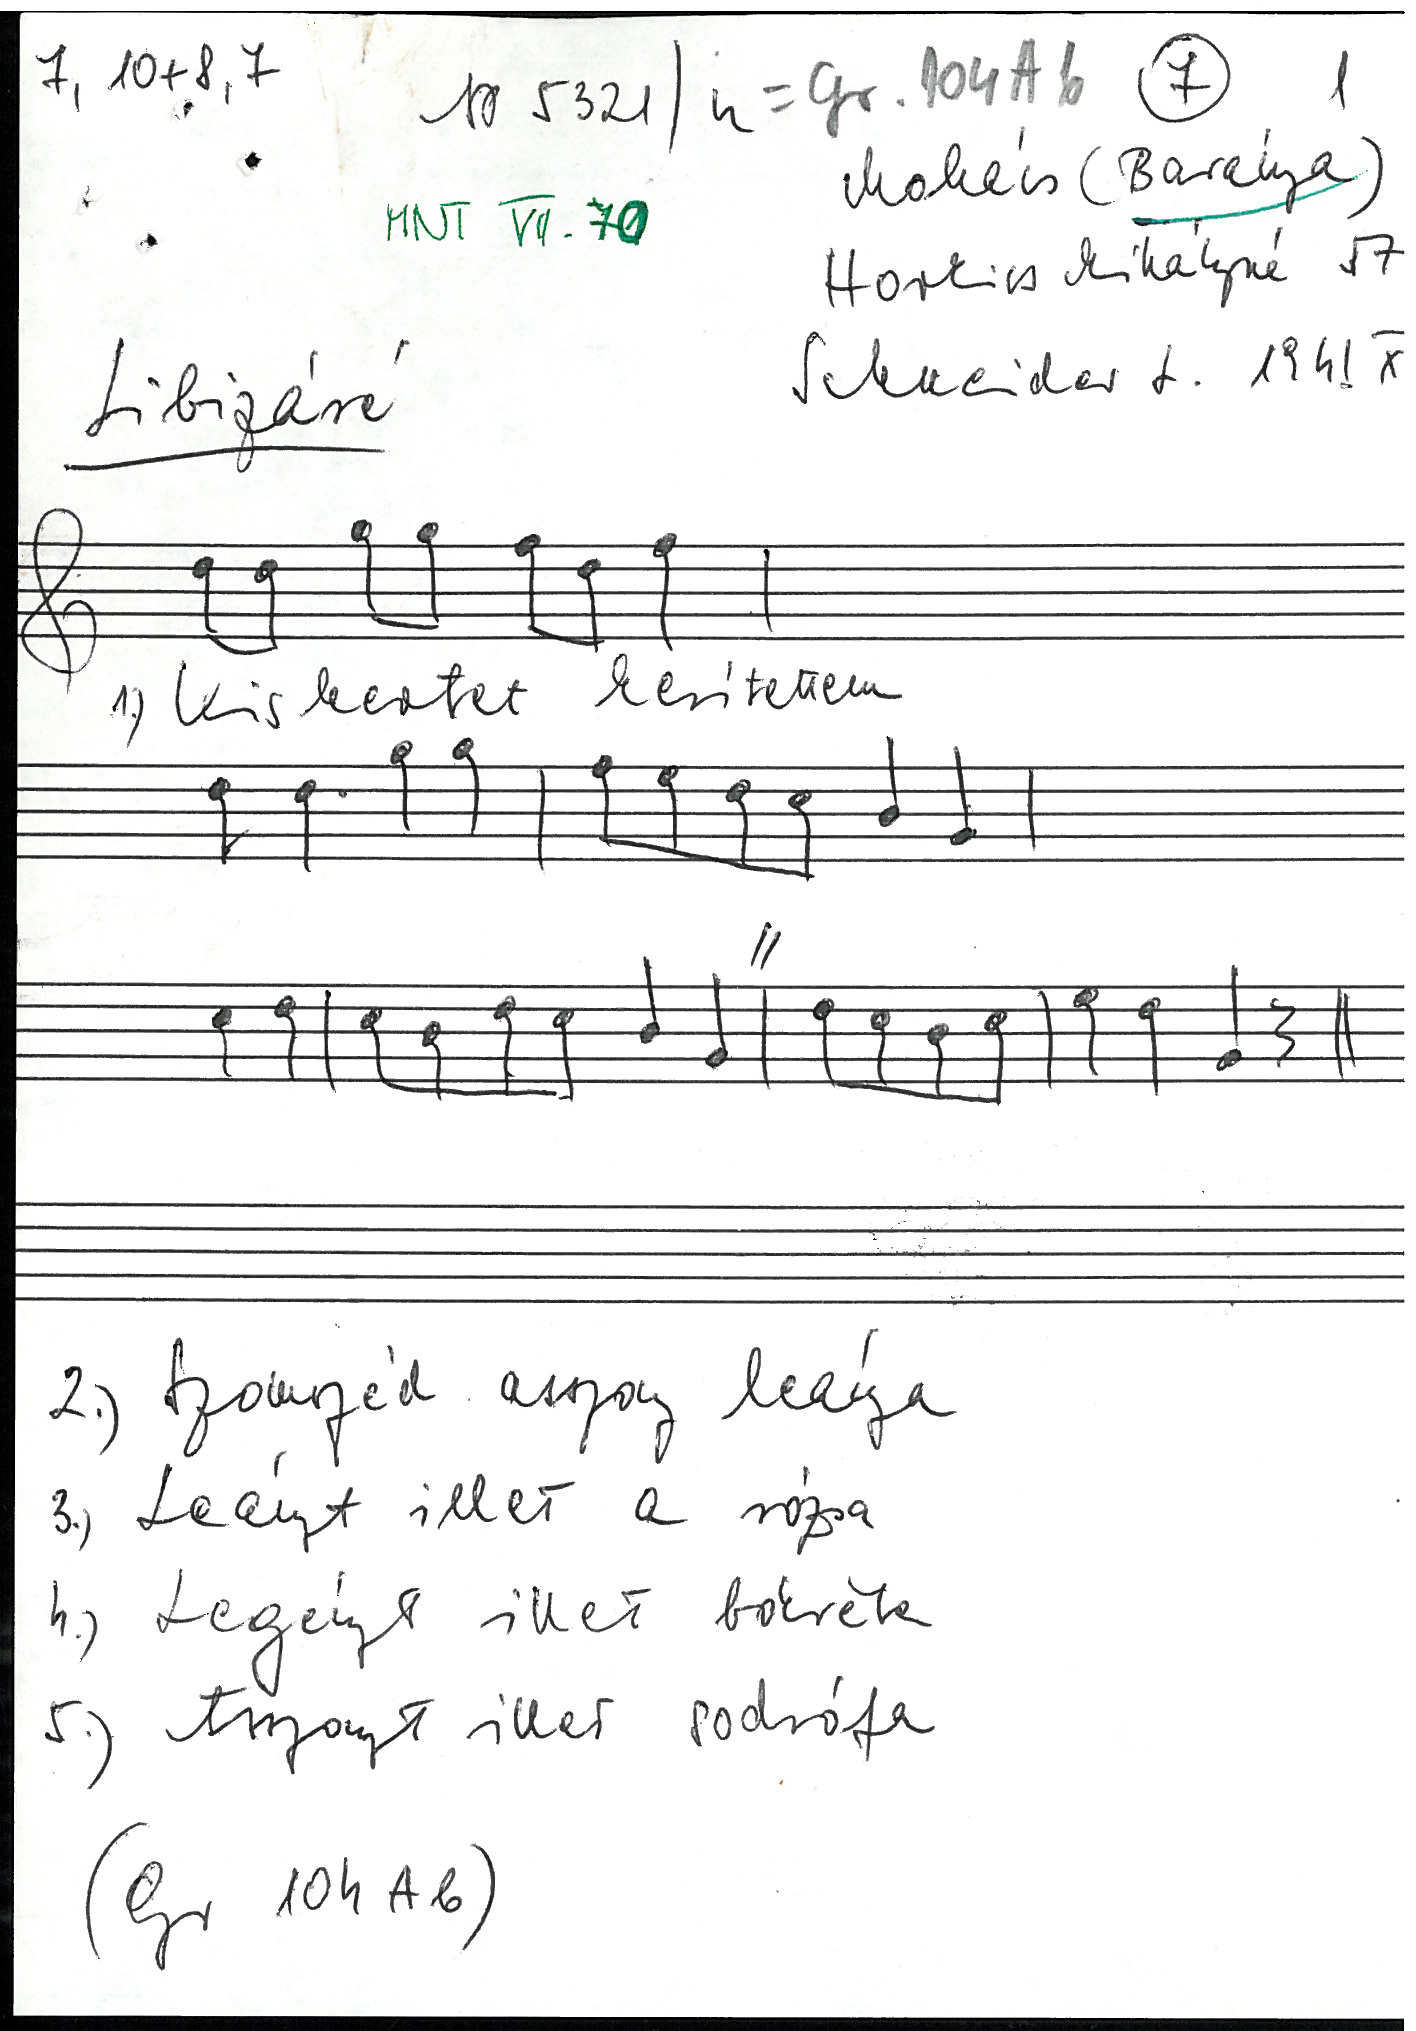 7, 10+8, 7
5321/n = Gr. 104 A b 7 1
Mohács (Baranya)
MNT VII. 70
Mihályné 57
Schneider L. 1941 X
Libizáré
1.) Kis kertet kerítettem
2.) Szomszéd asszony leánya
3.) Leányt illet a rózsa
4.) Legényt illet bokréta
5.) Asszonyt illet sodrófa
(Gr 104 A b)